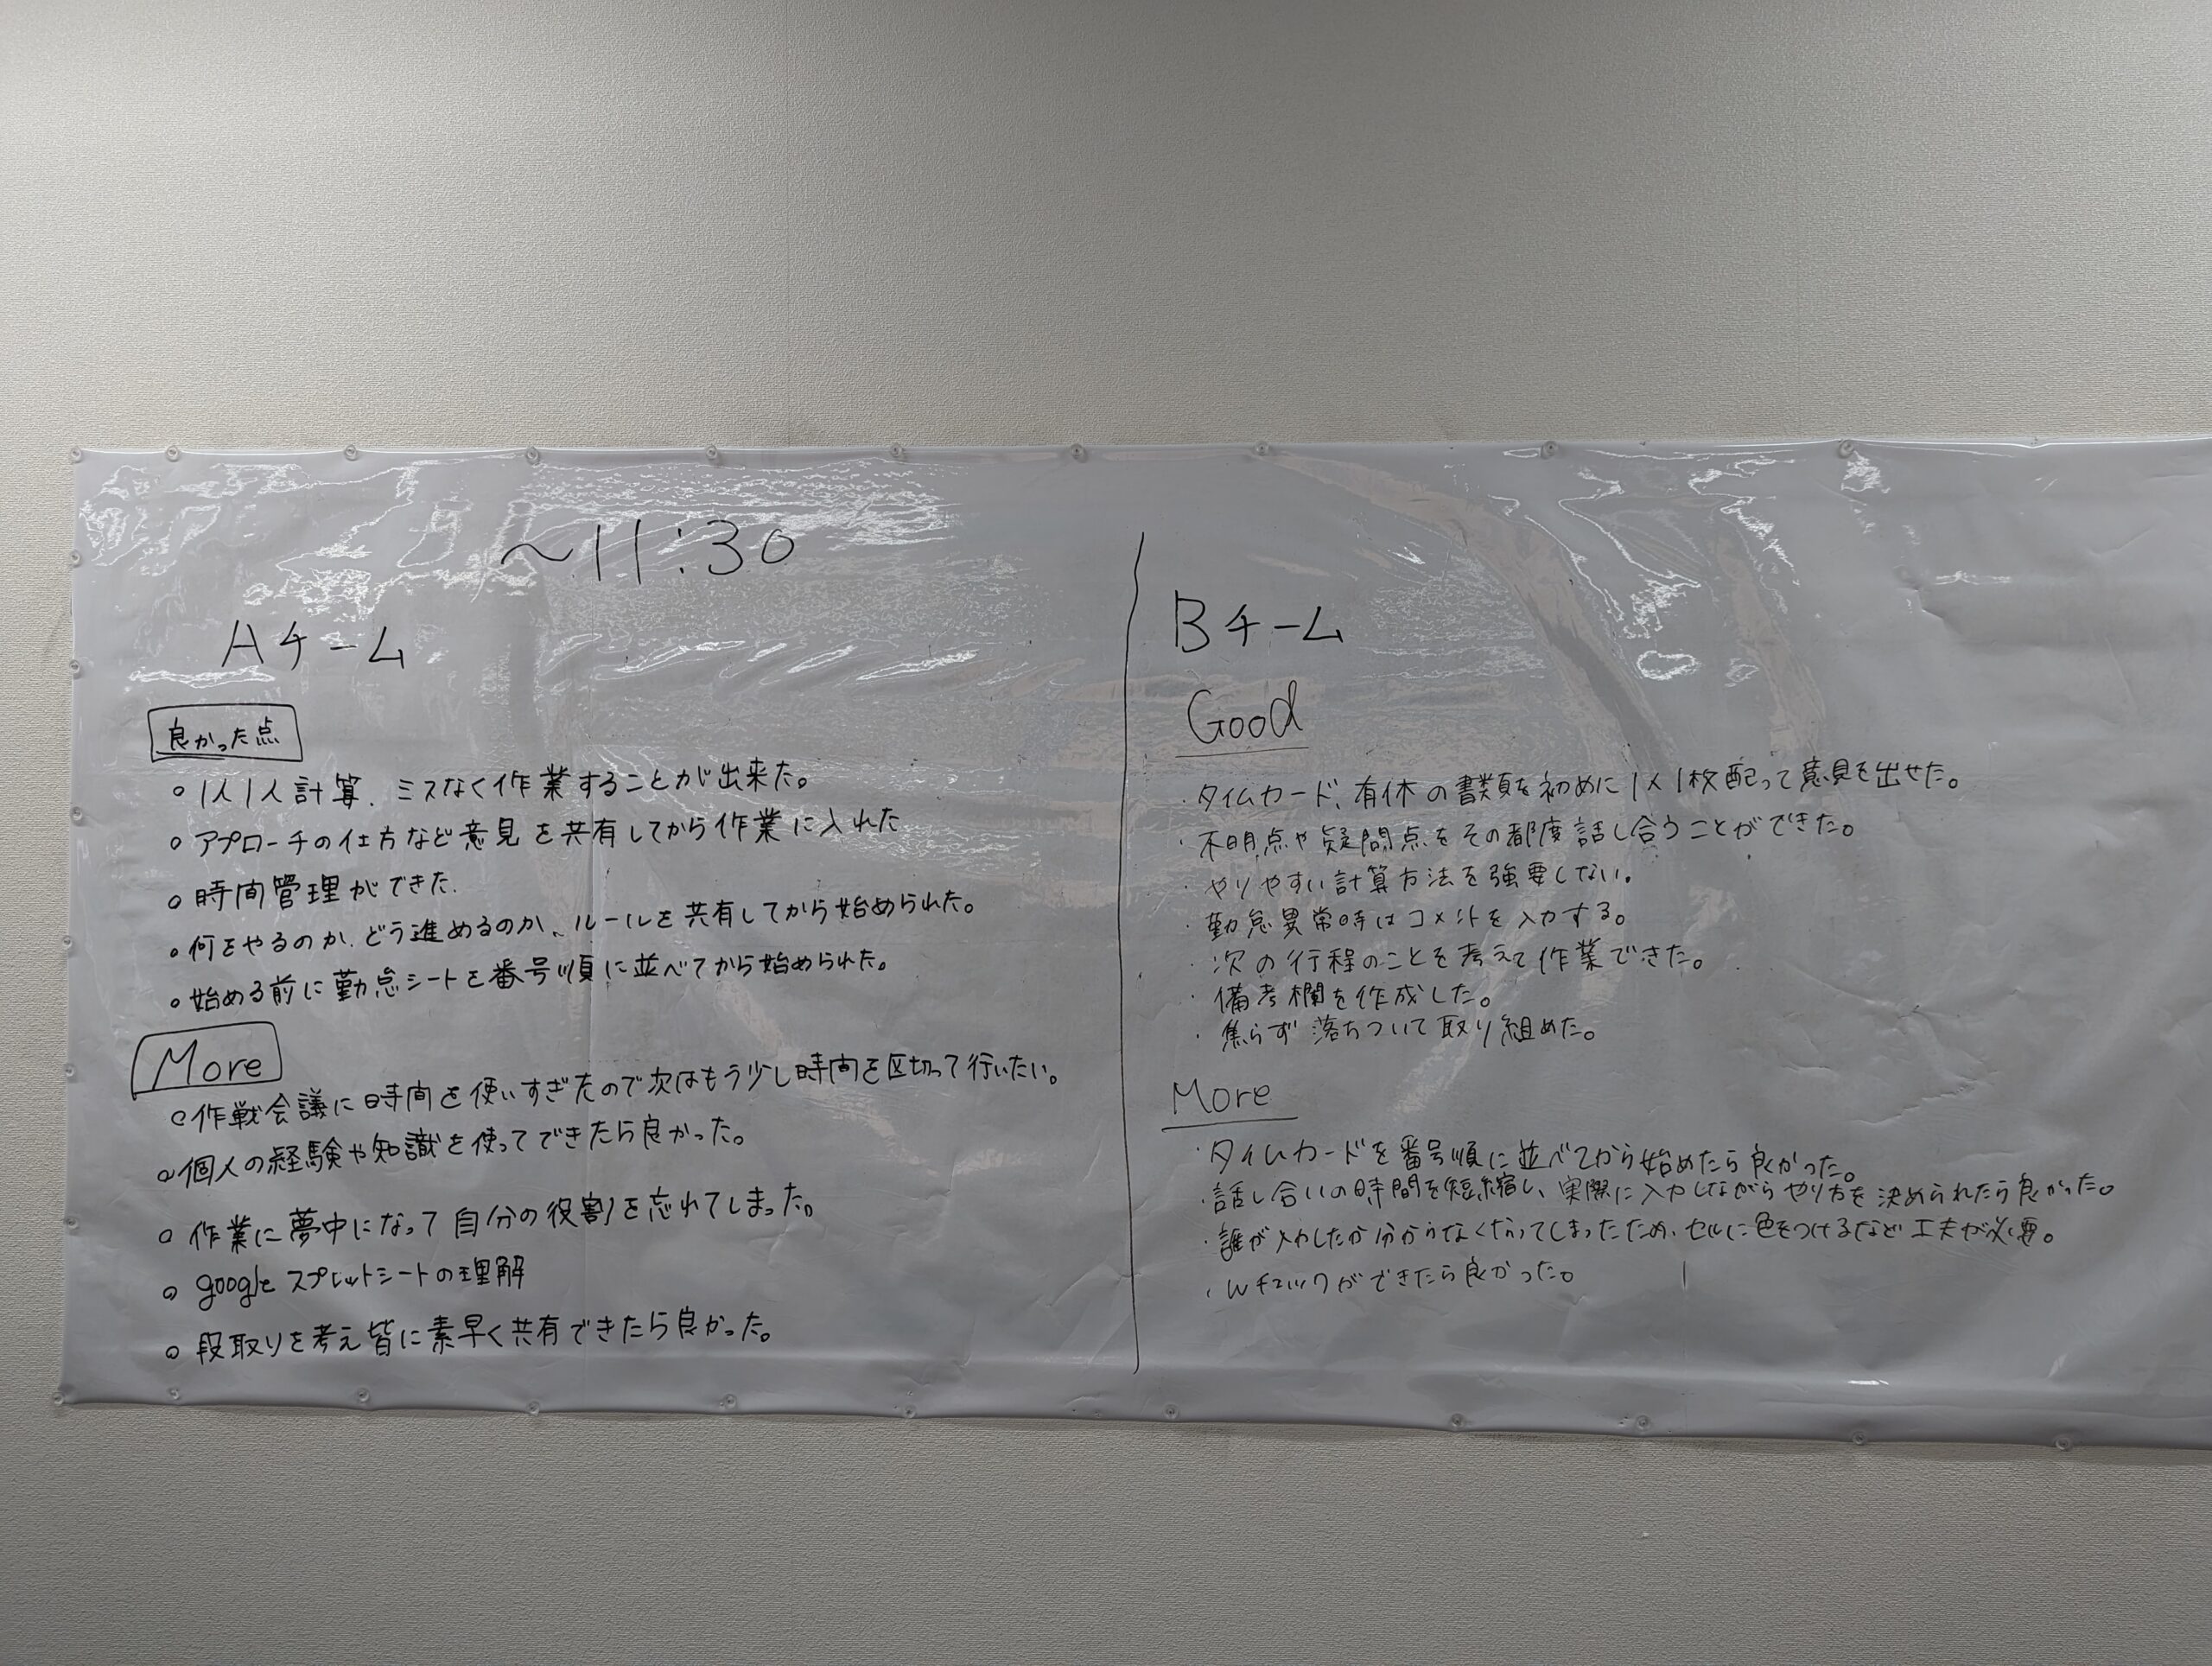 ～11:30
Aチーム
良かった点
○1人1人計算、ミスなく作業することが出来た。
○アプローチの仕方など意見を共有してから作業に入れた
○時間管理ができた.
○何をやるのか、どう進めるのか、ルールを共有してから始められた。
○始める前に勤怠シートを番号順に並べてから始められた。
More
○作戦会議に時間を使いすぎたので次はもう少し時間を区切って行いたい。
○個人の経験や知識を使ってできたら良かった。
○作業に夢中になって自分の役割を忘れてしまった。
○googleスプレットシートの理解
○段取りを考え皆に素早く共有できたら良かった。
Bチーム
Good
・タイムカード、有休の書類を初めに1人1枚配って意見を出せた。
・不明点や疑問点をその都度話し合うことができた。
・やりやすい計算方法を強要しない。
・勤怠異常時はコメントを入力する。
・次の行程のことを考えて作業できた。
・備考欄を作成した。
・焦らず落ちついて取り組めた。
More
・タイムカードを番号順に並べてから始めたら良かった。
・話し合いの時間を短縮し、実際に入力しながらやり方を決められたら良かった。
・誰が入力したか分からなくなってしまったため、セルに色をつけるなど工夫が必要。
・Wチェックができたら良かった。